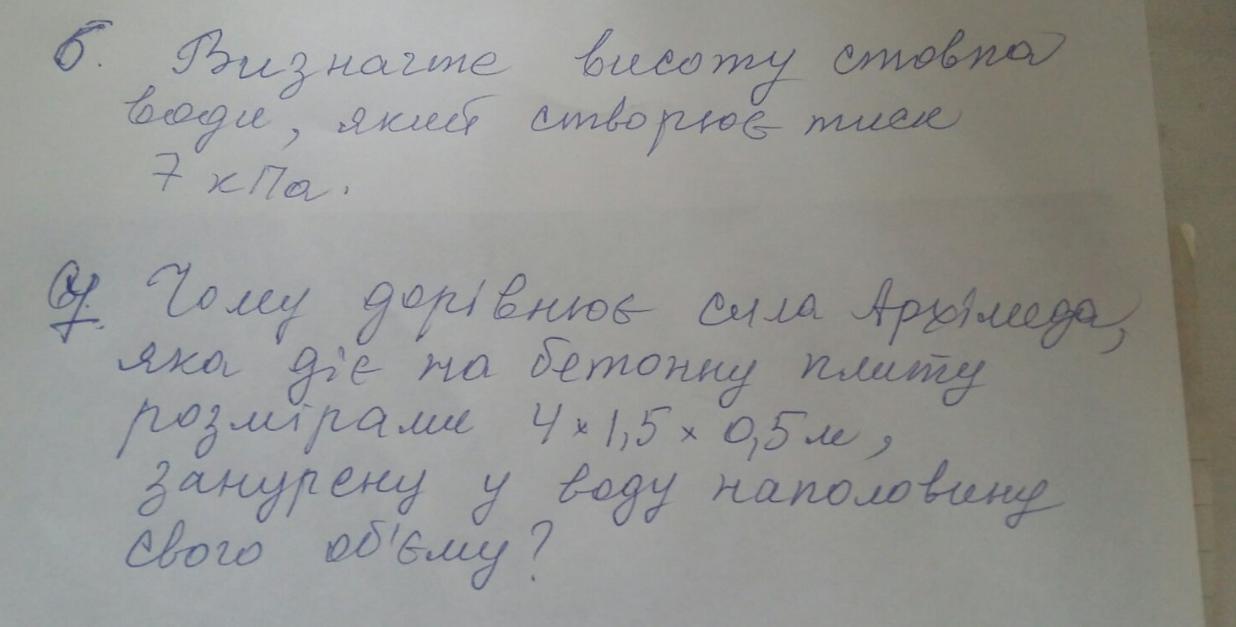 б. Визначте висоту стовпа
води, який створює тиск
7 кПа.
Чому дорівнює сила Архімеда,
яка діє на бетонну плиту
розмірами 4 × 1,5 × 0,5 м,
занурену у воду наполовину
свого об'єму?